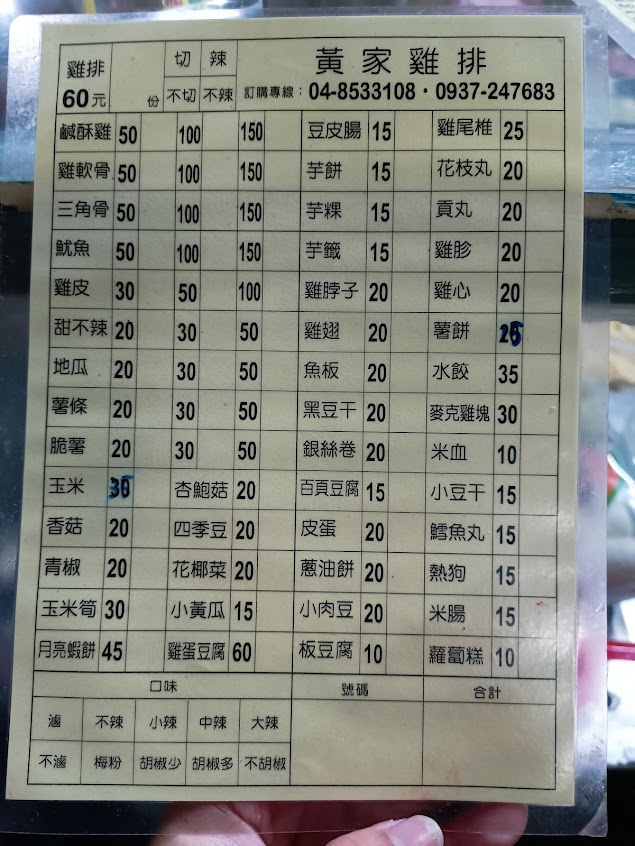 雞排 切 辣 黃家雞排
60元 份 不切 不辣 訂購專線：04-8533108・0937-247683
鹹酥雞 50 100 150 豆皮腸 15 雞尾椎 25
雞軟骨 50 100 150 芋餅 15 花枝丸 20
三角骨 50 100 150 芋粿 15 貢丸 20
魷魚 50 100 150 芋籤 15 雞胗 20
雞皮 30 50 100 雞脖子 20 雞心 20
甜不辣 20 30 50 雞翅 20 薯餅
地瓜 20 30 50 魚板 20 水餃 35
薯條 20 30 50 黑豆干 20 麥克雞塊 30
脆薯 20 30 50 銀絲卷 20 米血 10
玉米 35 杏鮑菇 20 百頁豆腐 15 小豆干 15
香菇 20 四季豆 20 皮蛋 20 鱈魚丸 15
青椒 20 花椰菜 20 蔥油餅 20 熱狗 15
玉米筍 30 小黃瓜 15 小肉豆 20 米腸 15
月亮蝦餅 45 雞蛋豆腐 60 板豆腐 10 蘿蔔糕 10
口味 號碼 合計
滷 不辣 小辣 中辣 大辣
不滷 梅粉 胡椒少 胡椒多 不胡椒